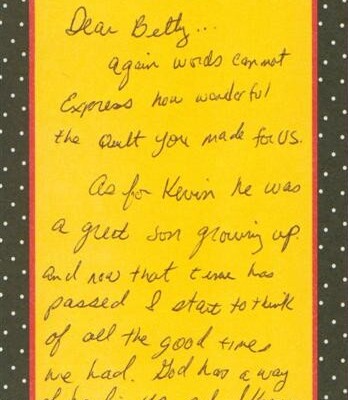 Dear Betty...
again words cannot
Express how wonderful
the Quilt you made for us.
As for Kevin he was
a great son growing up.
and now that time has
passed I start to think
of all the good times
we had. God has a way
of